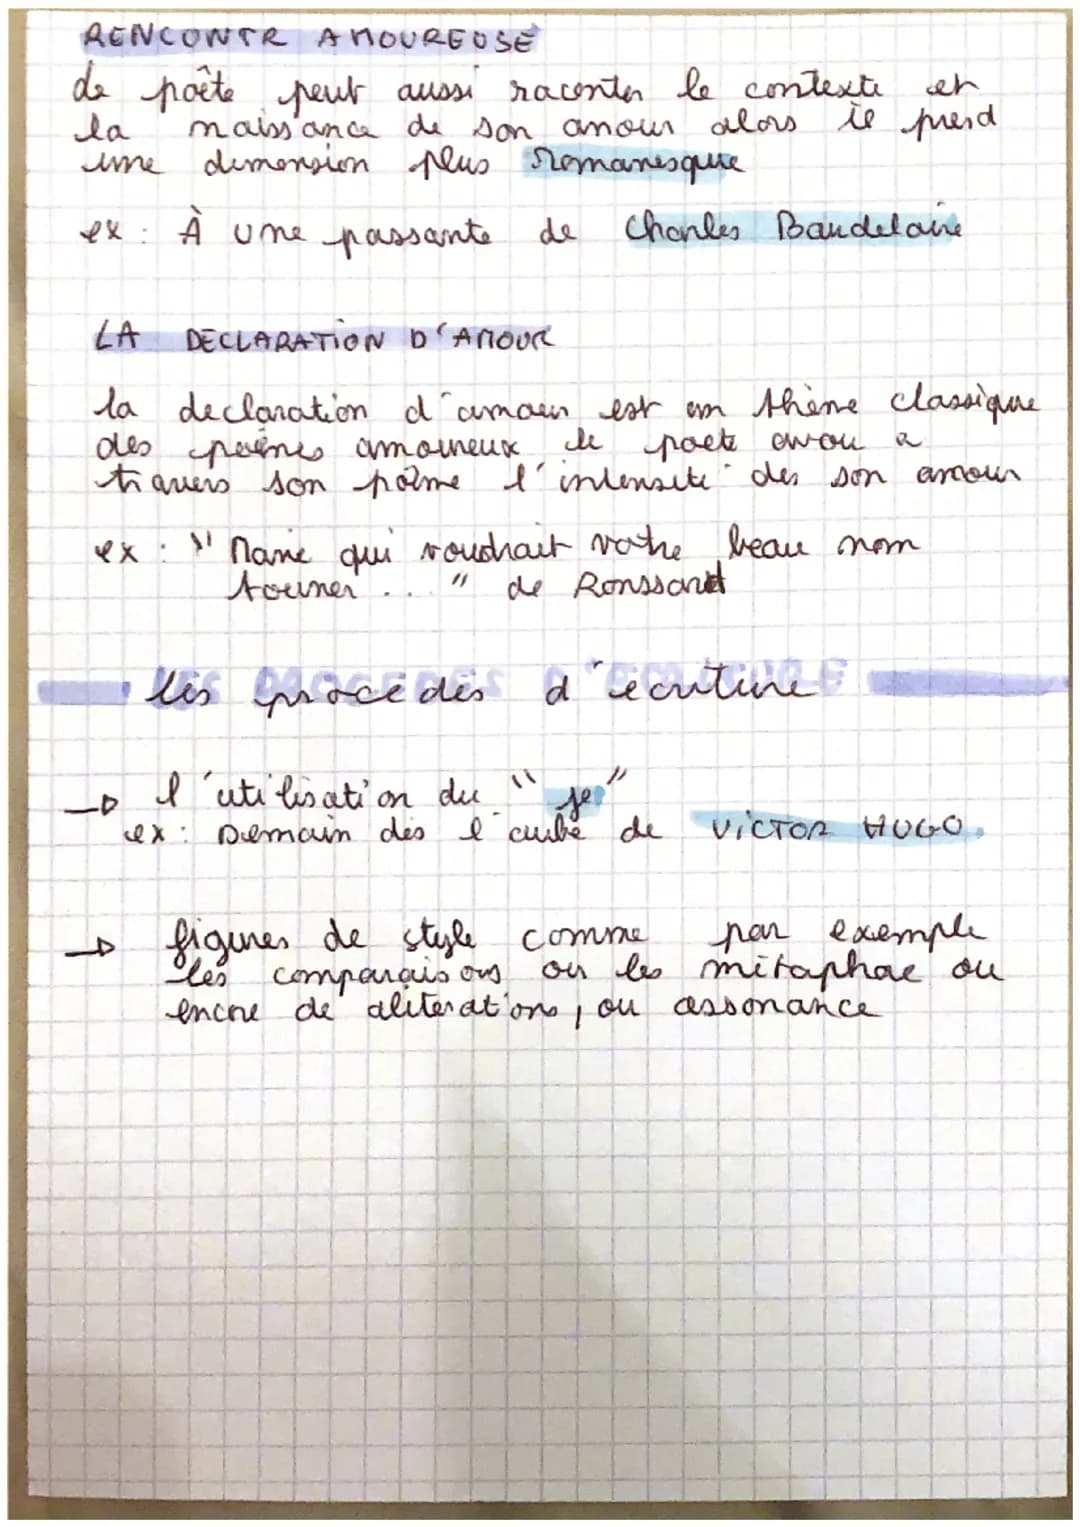 RENCONTR AMOUREUSE
de poête peut aussi raconter le contexte et
la naissance de son amour alors il prend
une dimension plus Romanesque
ex : À une passante de Charles Baudelaire
LA DECLARATION D'AMOUR
la declaration d'amour est un thème classique
des poèmes amoureux le poete avou a
travers son poème l'intensité des son amour
ex : " Marie qui voudrait votre beau nom
tourner ... " de Ronssard
les procedés d'écriture
→ l'utilisation du "je"
ex : Demain dès l'aube de VICTOR HUGO.
→ figures de style comme par exemple
les comparaisons ou les métaphore ou
encore de aliterations, ou assonance